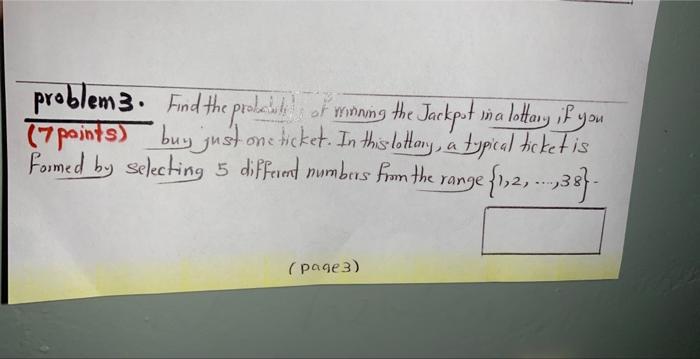 problem 3. Find the probability of winning the Jackpot in a lottary if you
(7 points) buy just one ticket. In this lottary, a typical ticket is
Formed by selecting 5 different numbers from the range {1,2, ...,38}.
(page 3)